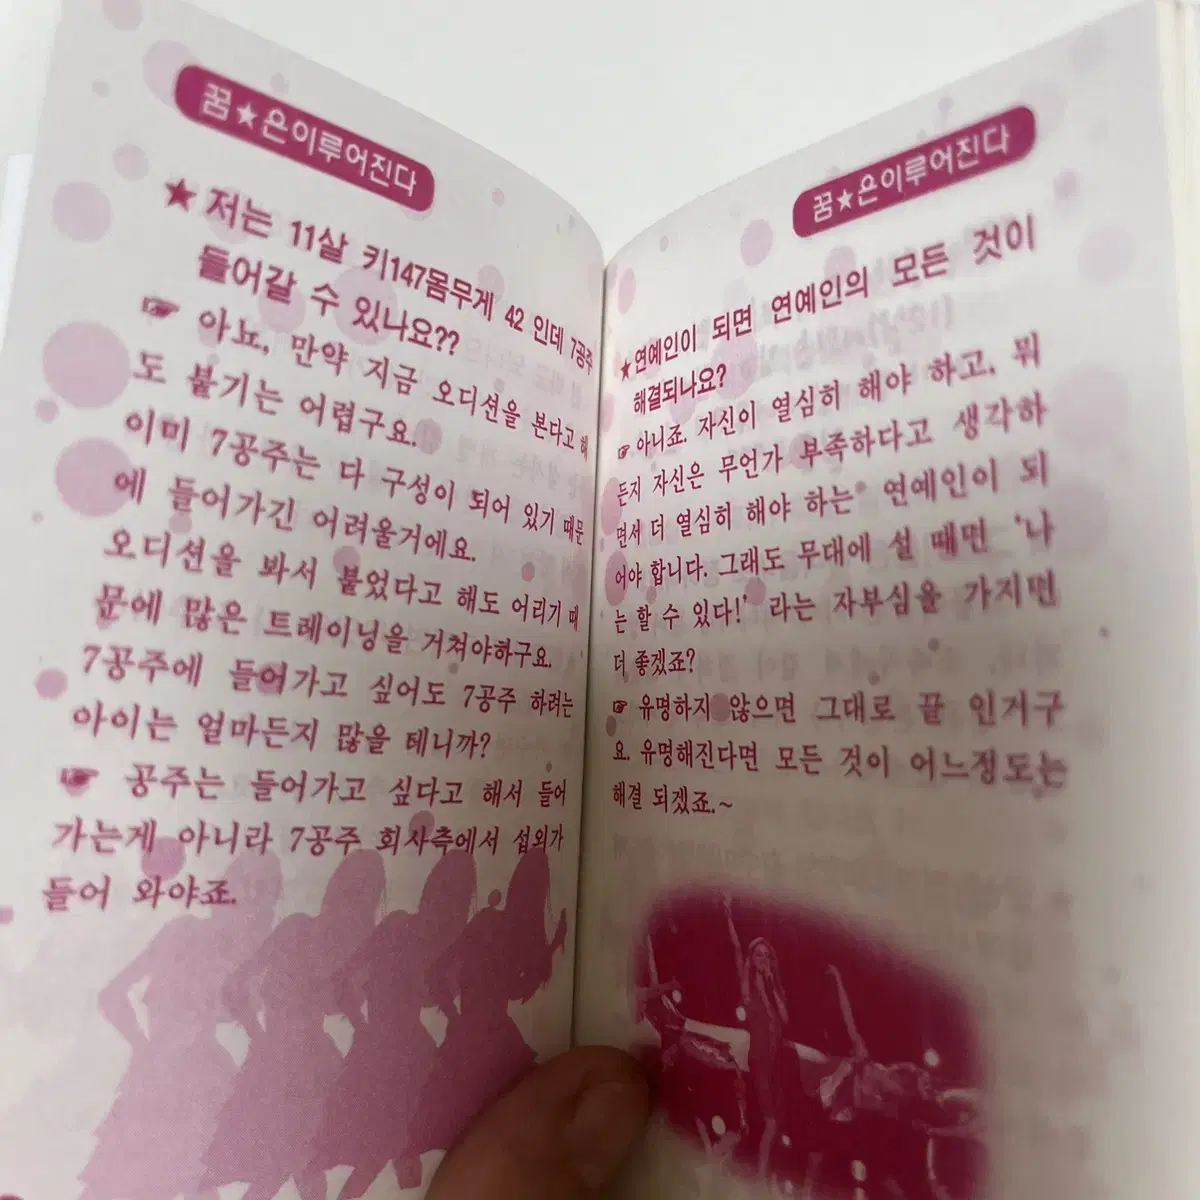 꿈★은이루어진다
★ 저는 11살 키147몸무게 42 인데 7공주
들어갈 수 있나요??
☞ 아뇨, 만약 지금 오디션을 본다고 해
도 붙기는 어렵구요.
이미 7공주는 다 구성이 되어 있기 때문
에 들어가긴 어려울거에요.
오디션을 봐서 붙었다고 해도 어리기 때
문에 많은 트레이닝을 거쳐야하구요.
7공주에 들어가고 싶어도 7공주 하려는
아이는 얼마든지 많을 테니까?
☞ 공주는 들어가고 싶다고 해서 들어
가는게 아니라 7공주 회사측에서 섭외가
들어 와야죠.
꿈★은이루어진다
★연예인이 되면 연예인의 모든 것이
해결되나요?
☞아니죠. 자신이 열심히 해야 하고, 뭐
든지 자신은 무언가 부족하다고 생각하
면서 더 열심히 해야 하는 연예인이 되
어야 합니다. 그래도 무대에 설 때면 '나
는 할 수 있다!' 라는 자부심을 가지면
더 좋겠죠?
☞ 유명하지 않으면 그대로 끝 인거구
요. 유명해진다면 모든 것이 어느정도는
해결 되겠죠.~